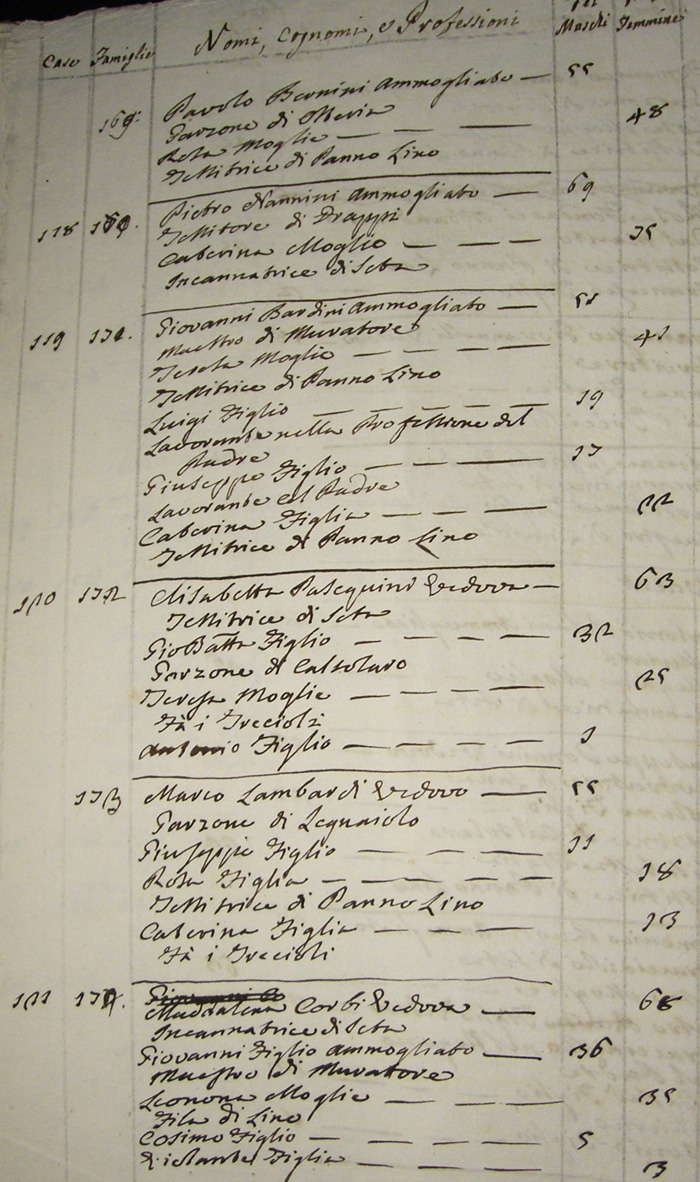 Case Famiglie Nomi, Cognomi, e Professioni Maschi Femmine
169. Paolo Bernini Ammogliato — 55
Garzone di
Rosa Moglie — — — 48
Tessitrice di Panno Lino
118 Pietro Nannini Ammogliato — 69
Tessitore di Drappi
Caterina Moglie — — —
Incannatrice di Seta
119 171. Giovanni Bardini Ammogliato —
Maestro di Muratore
Teresa Moglie — — — 41
Tessitrice di Panno Lino
Luigi Figlio — — — — 19
Lavorante nella Professione del
Padre
Giuseppe Figlio — — — 17
Lavorante col Padre
Caterina Figlia — — — 22
Tessitrice di Panno Lino
120 172 Elisabetta Pasequini Vedova — 63
Tessitrice di Seta
Gio Batta Figlio — — — — 32
Garzone di Calzolaro
Teresa Moglie — — — — 25
Fà i Trecioli
Antonio Figlio — — — — 1
173 Marco Lambardi Vedovo — 55
Garzone di Legnaiolo
Giuseppe Figlio — — — — 11
Rosa Figlia — — — — — 18
Tessitrice di Panno Lino
Caterina Figlia — — — 13
Fà i Trecioli
121 174. Maddalena Corbi Vedova — 68
Incannatrice di Seta
Giovanni Figlio Ammogliato — 36
Maestro di Muratore
Leonora Moglie — — — 35
Fila di Lino
Cosimo Figlio — — — — 5
Violante Figlia — — — — 3